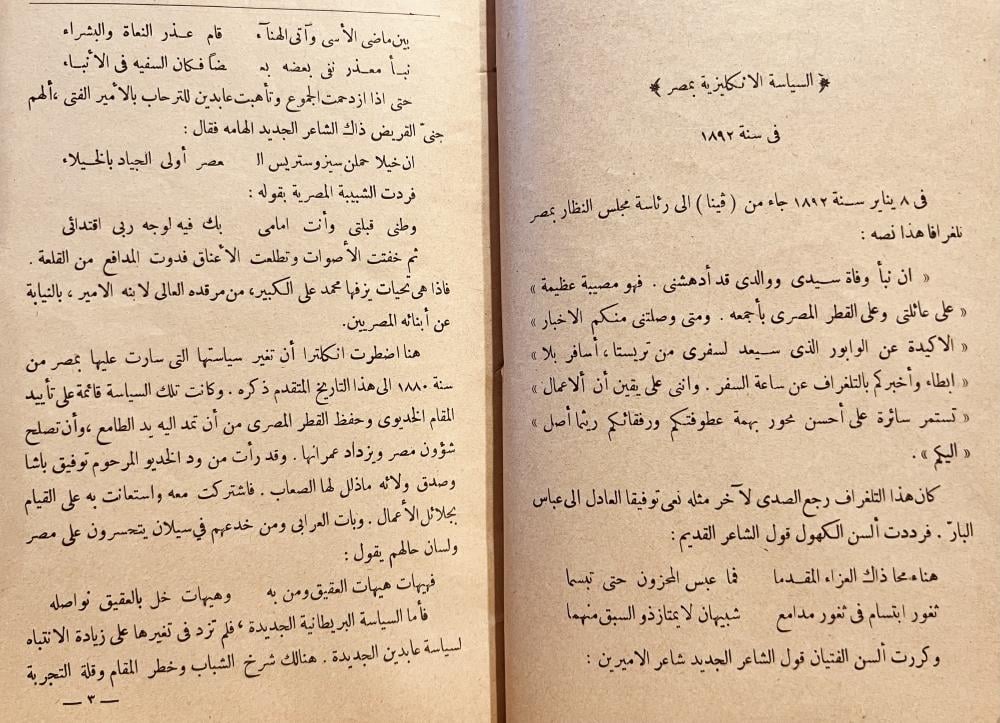 ﴿ السياسة الانكليزية بمصر ﴾
فى سنة ١٨٩٢
فى ٨ يناير سـنة ١٨٩٢ جاء من ( ڤينا ) الى رئاسة مجلس النظار بمصر
تلغرافا هذا نصه :
« ان نبأ وفاة سـيدى ووالدى قد أدهشنى . فهو مصيبة عظيمة »
« على عائلتى وعلى القطر المصرى بأجمعه . ومتى وصلتنى منكم الاخبار »
« الاكيدة عن الوابور الذى سـيعد لسفرى من تريستا ، أسافر بلا »
« ابطاء وأخبركم بالتلغراف عن ساعة السفر . واننى على يقين أن ألاعمال »
« تستمر سائرة على أحسن محور بهمة عطوفتكم ورفقائكم ريثما أصل »
« اليكم » .
كان هذا التلغراف رجع الصدى لآخر مثله نعى توفيقا العادل الى عباس
البارّ . فرددت ألسن الكهول قول الشاعر القديم :
هناء محا ذاك العزاء المقدما فما عبس المحزون حتى تبسما
ثغور ابتسام فى ثغور مدامع شبيهان لا يمتاز ذو السبق منهما
وكررت ألسن الفتيان قول الشاعر الجديد شاعر الاميرين :
بين ماضى الأسى وآتى الهنآء قام عـذر النعاة والبشراء
نبـأ معـذر نفى بعضه بعـ ضاً فـكان السفيه فى الأنبـاء
حتى اذا ازدحمت الجموع وتأهبت عابدين للترحاب بالأمير الفتى ، ألهم
جنىّ القريض ذاك الشاعر الجديد الهامه فقال :
ان خيلا حملن سيزوستريس الـ معصر أولى الجياد بالخـيلاء
فردت الشبيبة المصرية بقوله :
وطنى قبلتى وأنت امامى بك فيه لوجه ربى اقتدائى
ثم خفتت الأصوات وتطلعت الأعناق فدوت المدافع من القلعة .
فاذا هى تحيات يزفها محمد على الكبير، من مرقده العالى لابنه الامير ، بالنيابة
عن أبنائه المصريين.
هنا اضطرت انكلترا أن تغير سياستها التى سارت عليها بمصر من
سنة ١٨٨٠ الى هذا التاريخ المتقدم ذكره . وكانت تلك السياسة قائمة على تأييد
المقام الخديوى وحفظ القطر المصرى من أن تمد اليه يد الطامع ، وأن تصلح
شؤون مصر ويزداد عمرانها . وقد رأت من ود الخديو المرحوم توفيق باشا
وصدق ولائه ماذلل لها الصعاب . فاشتركت معه واستعانت به على القيام
بجلائل الأعمال . وبات العرابى ومن خدعهم فى سيلان يتحسرون على مصر
ولسان حالهم يقول :
فهيهات هيهات العقيق ومن به وهيهات خل بالعقيق نواصله
فأما السياسة البريطانية الجديدة ، فلم تزد فى تغيرها على زيادة الانتباه
لسياسة عابدين الجديدة . هنالك شرخ الشباب وخطر المقام وقلة التجربة
— ٣ —